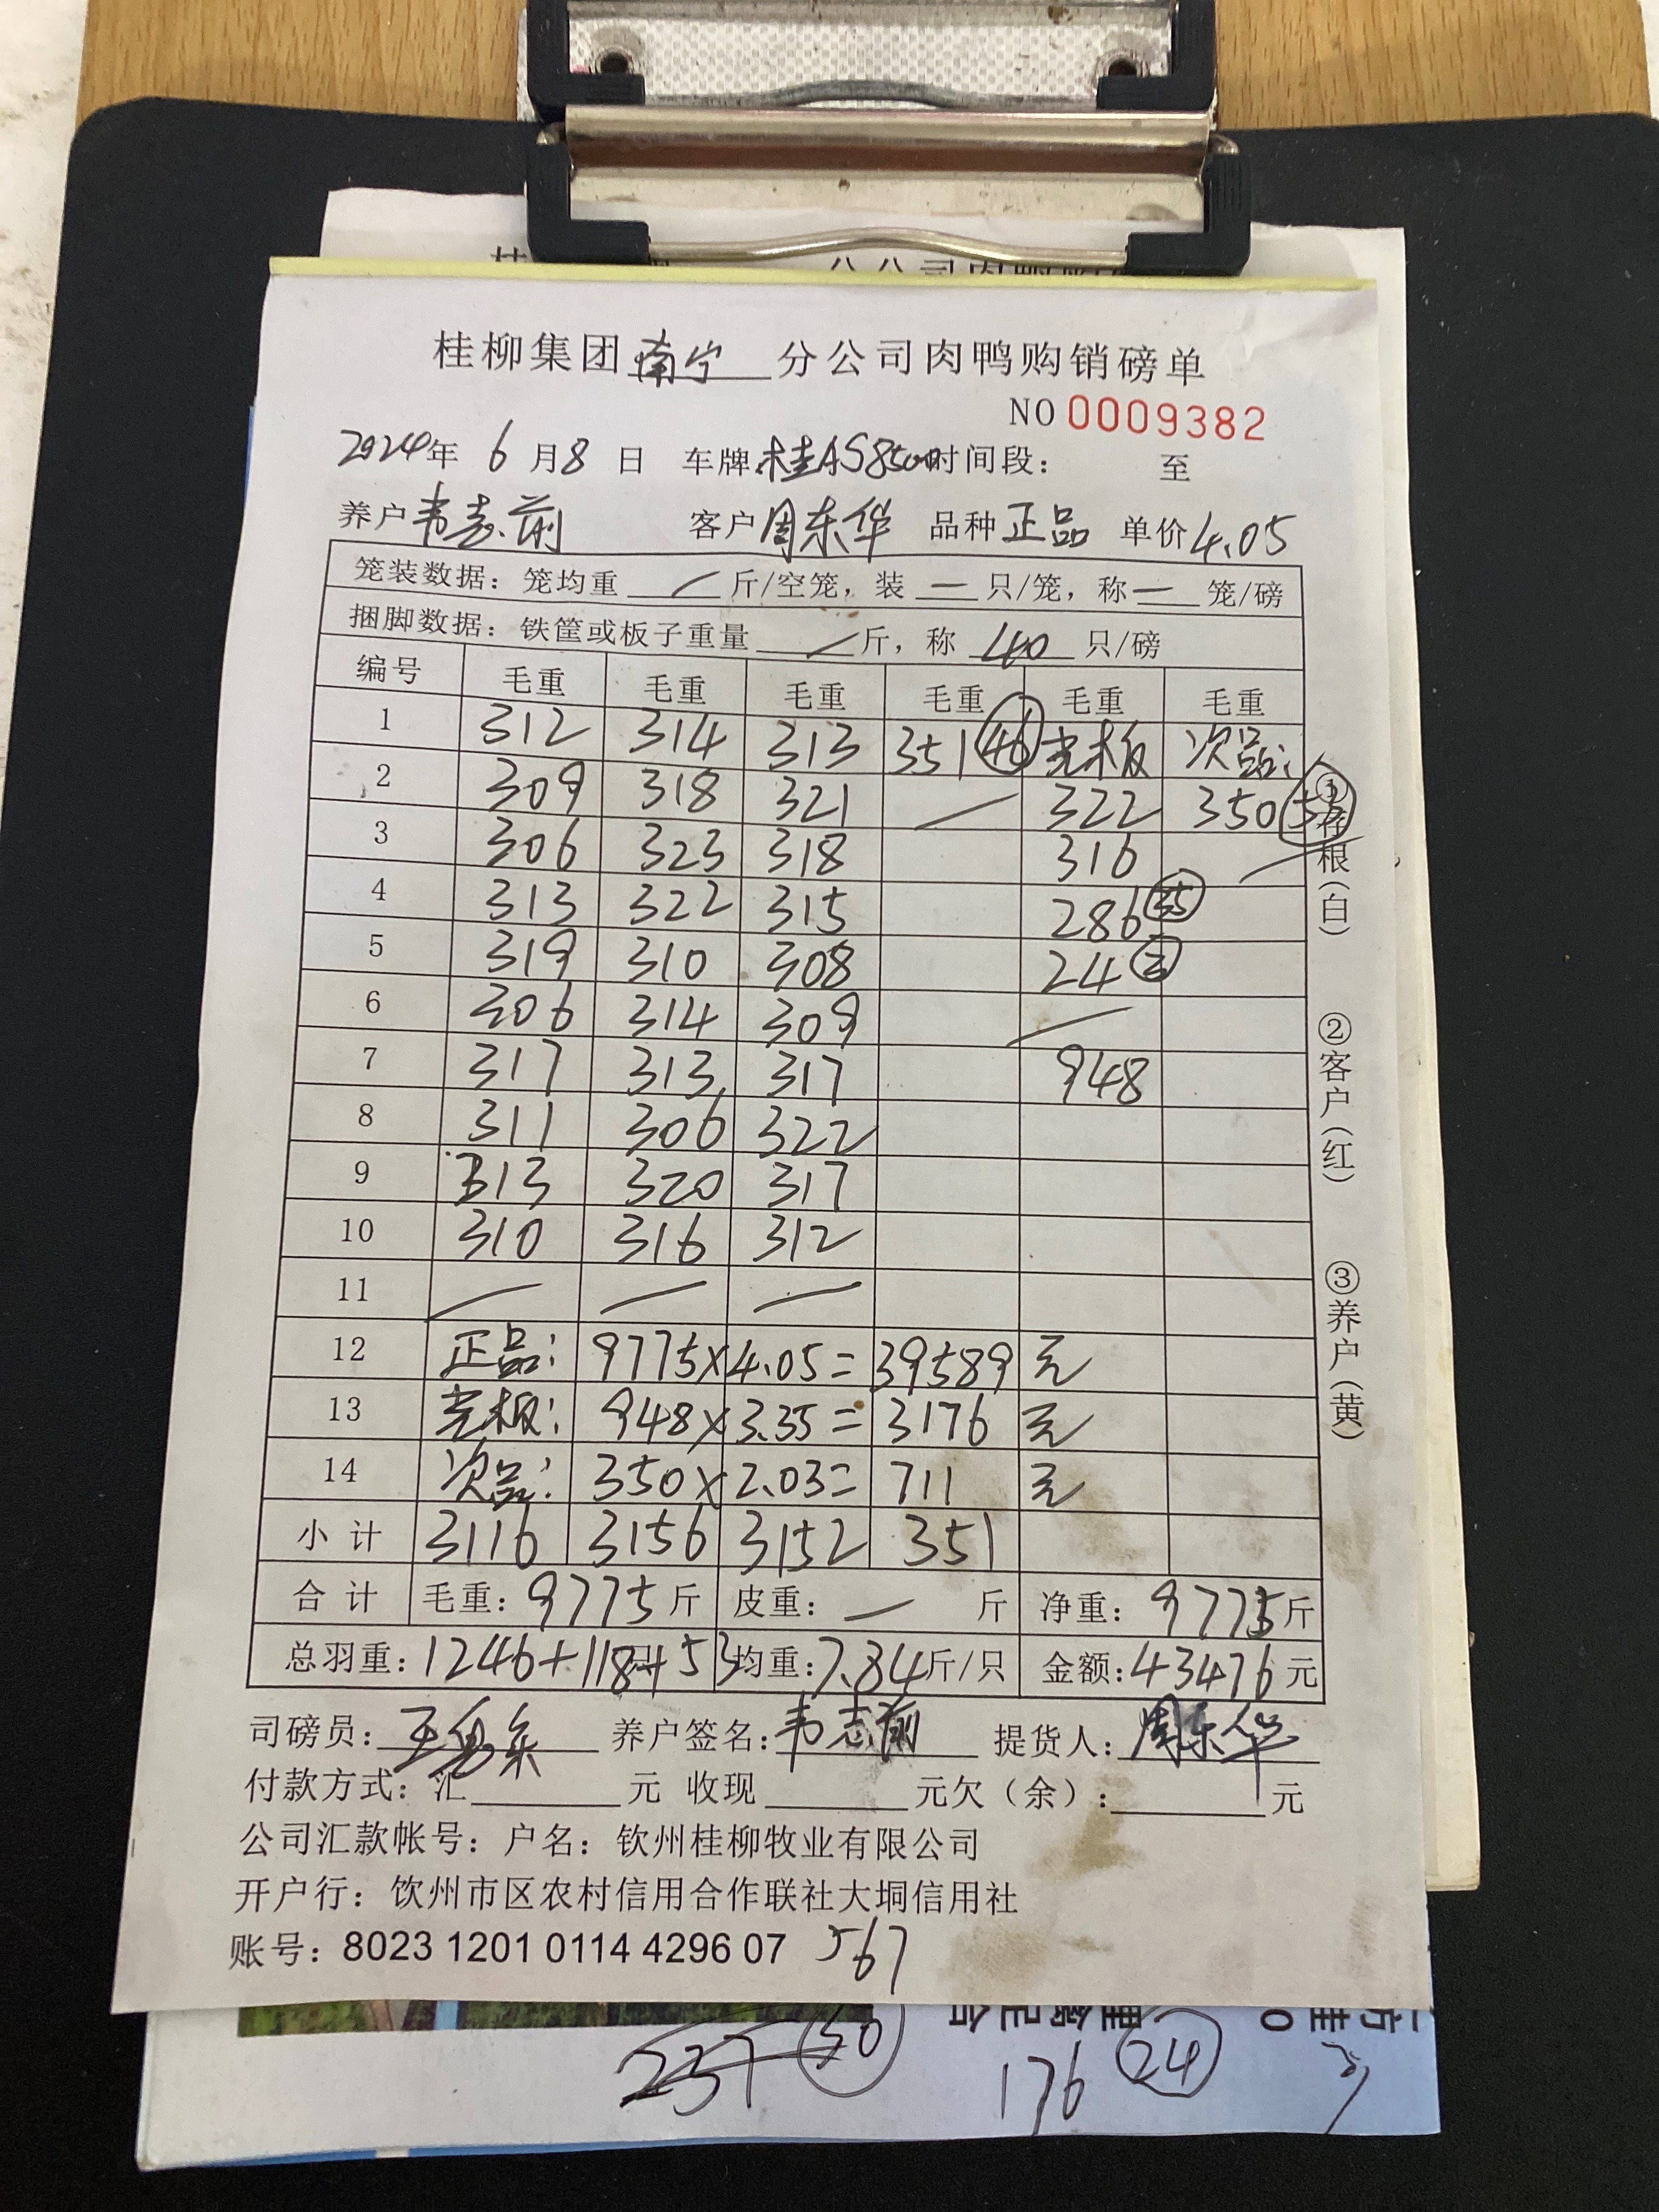 桂柳集团南宁分公司肉鸭购销磅单
NO 0009382
2024年 6月8日 车牌桂AS850 时间段： 至
养户韦志前 客户周东华 品种正品 单价4.05
笼装数据：笼均重 — 斤/空笼，装 — 只/笼，称 — 笼/磅
捆脚数据：铁筐或板子重量 — 斤，称 40 只/磅
编号 毛重 毛重 毛重 毛重 毛重 毛重
1 312 314 313 351 46 光板 次品：
2 309 318 321 — 322 350 53
3 306 323 318 316 —
4 313 322 315 286 35
5 319 310 308 24 3
6 306 314 309 —
7 317 313 317 948
8 311 306 322
9 313 320 317
10 310 316 312
11 — — —
12 正品：9775×4.05=39589元
13 光板：948×3.35=3176元
14 次品：350×2.03=711元
小计 3116 3156 3152 351
合计 毛重：9775斤 皮重：— 斤 净重：9775斤
总羽重：1246+118+53 均重：7.84斤/只 金额：43476元
①存根（白）
②客户（红）
③养户（黄）
司磅员： 养户签名：韦志前 提货人：周东华
付款方式：汇 元 收现 元欠（余）： 元
公司汇款帐号：户名：钦州桂柳牧业有限公司
开户行：饮州市区农村信用合作联社大垌信用社
账号：8023 1201 0114 4296 07 567
237 30
176 24